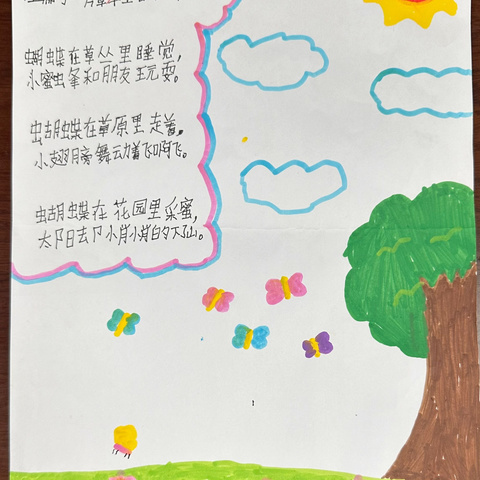 蝴蝶在草丛里睡觉,
小蜜蜂和朋友玩耍。
蝴蝶在草原里走着,
小翅膀舞动着飞啊飞。
蝴蝶在花园里采蜜,
太阳去下小肖小肖的下山。